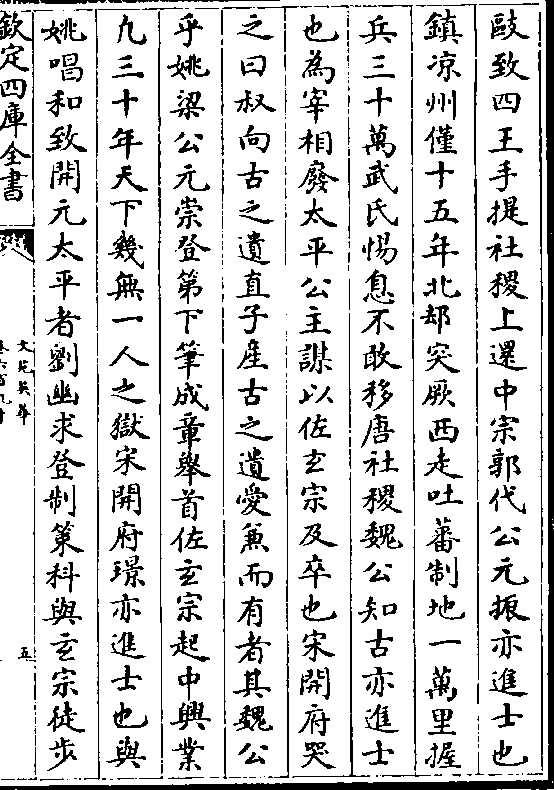 敺致四王手提社稷上還中宗郭代公元振亦進士也
鎮凉州僅十五年北却突厥西走吐蕃制地一萬里握
兵三十萬武氏惕息不敢移唐社稷魏公知古亦進士
也為宰相廢太平公主謀以佐玄宗及卒也宋開府哭
之曰叔向古之遺直子産古之遺愛兼而有者其魏公
乎姚梁公元崇登第下筆成章舉首佐玄宗起中興業
凡三十年天下幾無一人之獄宋開府璟亦進士也與
姚唱和致開元太平者劉幽求登制策科與玄宗徒步
欽定四庫全書
文苑英華
五